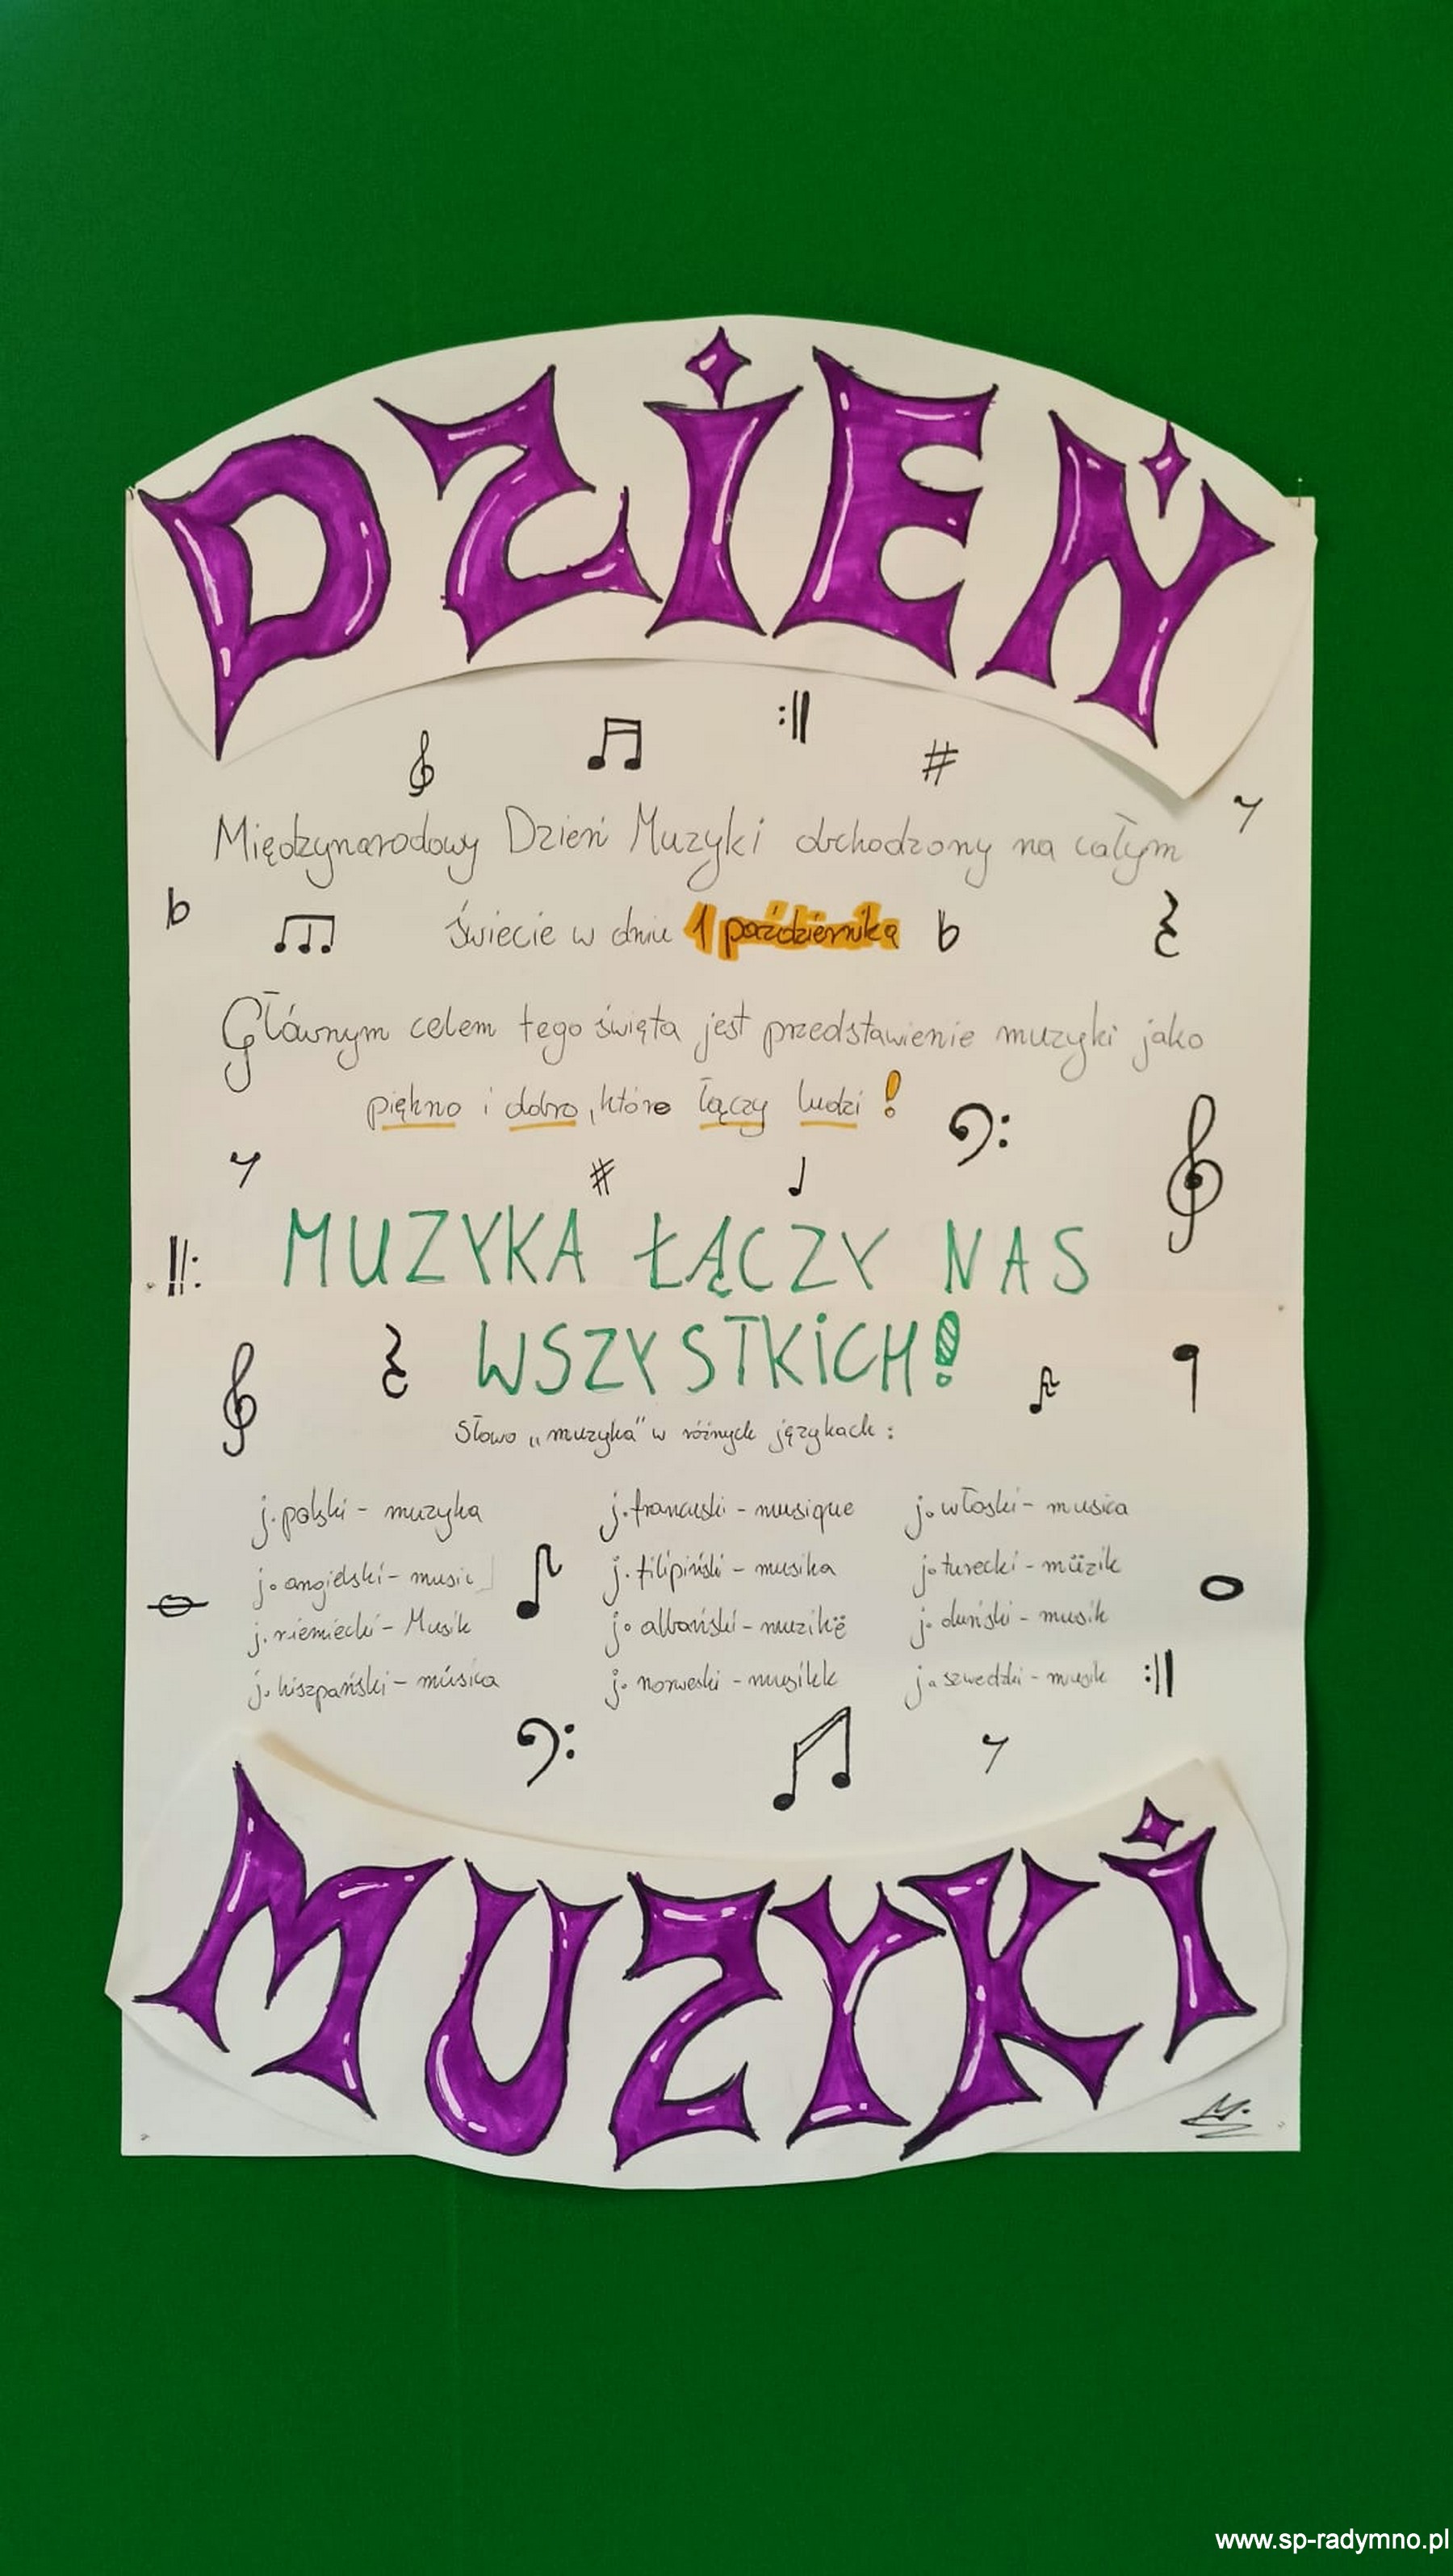 DZIEŃ
Międzynarodowy Dzień Muzyki obchodzony na całym
świecie w dniu 1 października
Głównym celem tego święta jest przedstawienie muzyki jako
piękno i dobro, które łączy ludzi!
MUZYKA ŁĄCZY NAS
WSZYSTKICH!
Słowo „muzyka" w różnych językach:
j. polski - muzyka
j. angielski - music
j. niemiecki - Musik
j. hiszpański - música
j. francuski - musique
j. filipiński - musika
j. albański - muzikë
j. norweski - musikk
j. włoski - musica
j. turecki - müzik
j. duński - musik
j. szwedzki - musik
MUZYKI
www.sp-radymno.pl